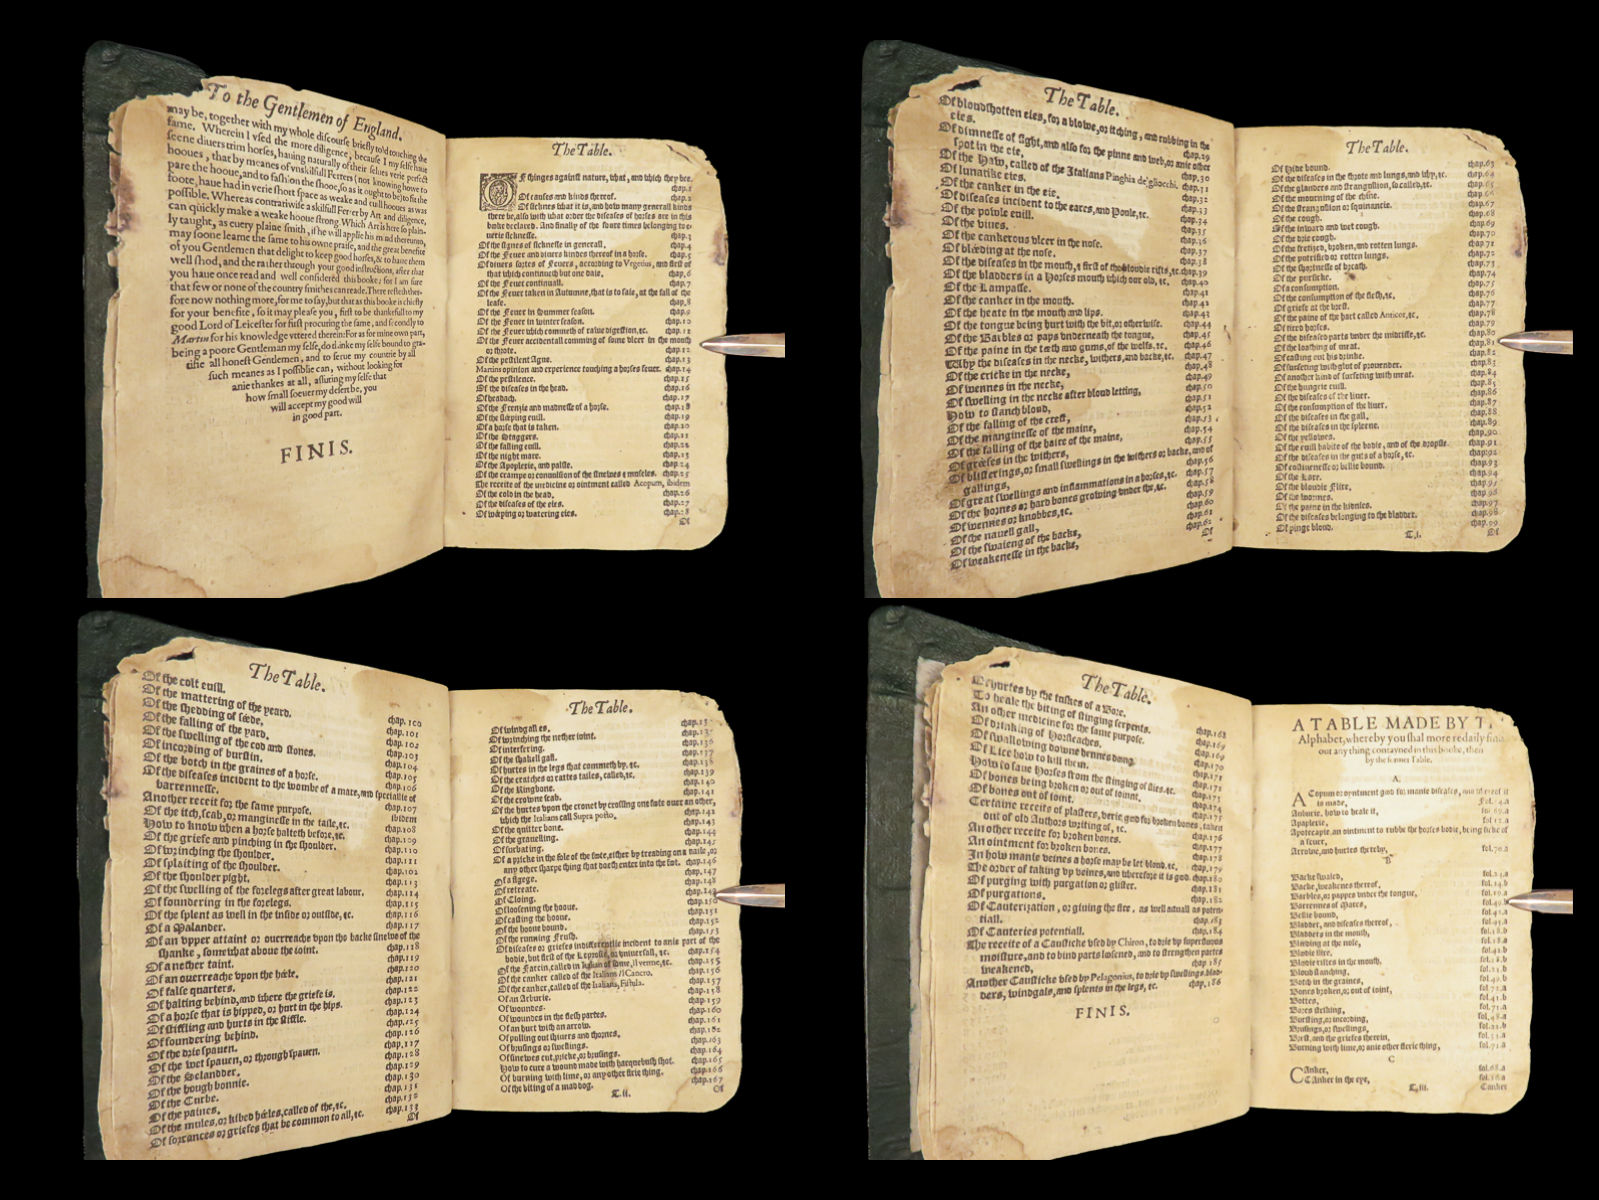 To the Gentlemen of England.
may be, together with my whole discourse briefly told touching the
same. Wherein I vsed the more diligence, because I my selfe haue
seene diuers trim horses, hauing naturally of their selues verie perfect
hooues, that by meanes of vnskilfull Ferrers (not knowing howe to
pare the hooue, and to fashion the shooe, so as it ought to be) to fit the
foote, haue had in verie short space as weake and euill hooues as was
possible. Whereas contrariwise a skilfull Ferrer by Art and diligence,
can quickly make a weake hooue strong. Which Art is here so plain-
ly taught, as euery plaine smith, if he will applie his mind thereunto,
may soone learne the same to his owne praise, and the great benefite
of you Gentlemen that delight to keep good horses, & to haue them
well shod, and the rather through your good instructions, after that
you haue once read and well considered this booke: for I am sure
that few or none of the country smithes can read. There resteth ther-
fore now nothing more, for me to say, but that as this booke is chiefly
for your benefite, so it may please you, first to be thankefull to my
good Lord of Leicester for first procuring the same, and secondly to
Martin for his knowledge vttered therein: For as for mine own part,
being a poore Gentleman my selfe, do thinke my selfe bound to gra-
tifie all honest Gentlemen, and to serue my countrie by all
such meanes as I possible can, without looking for
anie thankes at all, assuring my selfe that
how small soeuer my desert be, you
will accept my good will
in good part.
FINIS.
The Table.
OF thinges against nature, what, and which they bee.
chap.1
Of causes and kinds thereof. chap.2
Of sicknes what it is, and how many generall kinds
there be, also with what order the diseases of horses are in this
booke declared. And finally of the foure times belonging to e-
uerie sicknesse. chap.3
Of the signes of sicknesse in generall. chap.4
Of the Feuer and diuers kindes thereof in a horse. chap.5
Of diuers sortes of Feuers, according to Vegetius, and first of
that which continueth but one daie. chap.6
Of the Feuer continuall. chap.7
Of the Feuer taken in Autumne, that is to saie, at the fall of the
lease. chap.8
Of the Feuer in Summer season. chap.9
Of the Feuer in winter season. chap.10
Of the Feuer which commeth of rawe digestion, &c. chap.11
Of the Feuer accidentall comming of some vlcer in the mouth
or throte. chap.12
Of the pestilent Ague. chap.13
Martins opinion and experience touching a horses feuer. chap.14
Of the pestilence. chap.15
Of the diseases in the head. chap.16
Of headach. chap.17
Of the Frenzie and madnesse of a horse. chap.18
Of the sleeping euill. chap.19
Of a horse that is taken. chap.20
Of the staggers. chap.21
Of the falling euill. chap.22
Of the night mare. chap.23
Of the Apoplexie, and palsie. chap.24
Of the crampe or conuulsion of the sinewes & muscles. chap.25
The receite of the medicine or ointment called Acopum, ibidem
Of the cold in the head. chap.26
Of the diseases of the eies. chap.27
Of weeping or watering eies. chap.28
Of
The Table.
Of bloudshotten eies, for a blowe, or itching, and rubbing in the
eies. chap.29
Of dimnesse of sight, and also for the pinne and web, or anie other
spot in the eie. chap.30
Of the Haw, called of the Italians Pinghia de'gliocchi. chap.31
Of lunatike eies. chap.32
Of the canker in the eie. chap.33
Of diseases incident to the eares, and Poule, &c. chap.34
Of the powle euill. chap.35
Of the viues. chap.36
Of the cankerous vlcer in the nose. chap.37
Of bleeding at the nose. chap.38
Of the diseases in the mouth, & first of the bloudie rifts, &c. chap.39
Of the bladders in a Horses mouth which our old, &c. chap.40
Of the Lampasse. chap.41
Of the canker in the mouth. chap.42
Of the heate in the mouth and lips. chap.43
Of the tongue being hurt with the bit, or otherwise. chap.44
Of the Barbles or paps underneath the tongue, chap.45
Of the paine in the teeth and gums, of the wolfs, &c. chap.46
Why the diseases in the necke, withers, and backe, &c. chap.47
Of the cricke in the necke, chap.48
Of wennes in the necke, chap.49
Of swelling in the necke after bloud letting, chap.50
How to stanch bloud, chap.51
Of the falling of the crest, chap.52
Of the manginesse of the maine, chap.53
Of the falling of the haire of the maine, chap.54
Of griefes in the withers, chap.55
Of blisterings, or small swellings in the withers or backe, and of
gallings, chap.56
Of great swellings and inflammations in a horses, &c. chap.57
Of the hornes or hard bones growing vnder the, &c. chap.58
Of wennes or knobbes, &c. chap.59
Of the nauell gall, chap.60
Of the swaieng of the backe, chap.61
Of weakenesse in the backe, chap.62
Of
The Table.
Of hide bound. chap.63
Of the diseases in the throte and lungs, and why, &c. chap.64
Of the glanders and strangullion, so called, &c. chap.65
Of the mourning of the chine. chap.66
Of the strangullion or squinantie. chap.67
Of the cough. chap.68
Of the inward and wet cough. chap.69
Of the drie cough. chap.70
Of the fretized, broken, and rotten lungs. chap.71
Of the putrified or rotten lungs. chap.72
Of the shortnesse of breath. chap.73
Of the pursicke. chap.74
Of a consumption. chap.75
Of the consumption of the flesh, &c. chap.76
Of griefe at the brest. chap.77
Of the paine of the hart called Anticor, &c. chap.78
Of tired horses. chap.79
Of the diseased parts under the midriffe, &c. chap.80
Of the loathing of meat. chap.81
Of casting out his drinke. chap.82
Of surfeting with glut of prouender. chap.83
Of another kind of surfeting with meat. chap.84
Of the hungrie euill. chap.85
Of the diseases of the liuer. chap.86
Of the consumption of the liuer. chap.87
Of the diseases in the gall. chap.88
Of the diseases in the spleene. chap.89
Of the yellowes. chap.90
Of the euill habite of the bodie, and of the dropsie. chap.91
Of the diseases in the guts of a horse, &c. chap.92
Of costiuenesse or bellie bound. chap.93
Of the Laxe. chap.94
Of the bloudie Flixe, chap.95
Of the wormes. chap.96
Of the paine in the kidnies. chap.97
Of the diseases belonging to the bladder. chap.98
Of pisse bloud. chap.99
T.i. Of
The Table.
Of the colt euill. chap.100
Of the mattering of the yeard. chap.101
Of the shedding of seede, chap.102
Of the falling of the yard. chap.103
Of the swelling of the cod and stones. chap.104
Of incording or burstin. chap.105
Of the botch in the graines of a horse. chap.106
Of the diseases incident to the wombe of a mare, and speciallie of
barrennesse. chap.107
Another receit for the same purpose. ibidem
Of the itch, scab, or manginesse in the taile, &c. chap.108
How to know when a horse halteth before, &c. chap.109
Of the griefe and pinching in the shoulder. chap.110
Of wrinching the shoulder. chap.111
Of splaiting of the shoulder. chap.102
Of the shoulder pight. chap.113
Of the swelling of the forelegs after great labour. chap.114
Of foundering in the forelegs. chap.115
Of the splent as well in the inside or outside, &c. chap.116
Of a Malander. chap.117
Of an vpper attaint or ouerreache vpon the backe sinewe of the
shanke, somewhat aboue the ioint. chap.118
Of a nether taint. chap.119
Of an ouerreache vpon the heele. chap.120
Of false quarters. chap.122
Of halting behind, and where the griefe is. chap.123
Of a horse that is hipped, or hurt in the hips. chap.124
Of stiffling and hurts in the stiffle. chap.125
Of foundering behind. chap.126
Of the drie spauen. chap.127
Of the wet spauen, or through spauen. chap.128
Of the Selander. chap.129
Of the hough bonnie. chap.130
Of the Curbe. chap.131
Of the paines. chap.132
Of the mules, or kibed heeles, called of the, &c. chap.133
Of sorrances or griefes that be common to all, &c. Of
The Table.
Of windgalles.
Of wrinching the nether ioint.
Of interfering. chap.136
Of the shakell gall.
Of hurtes in the legs that commeth by, &c. chap.138
Of the cratches or rattes tailes, called, &c. chap.139
Of the Ringbone. chap.140
Of the crowne scab. chap.141
Of the hurtes vpon the cronet by crossing one foote ouer an other,
which the Italians call Supra posto, chap.142
Of the quitter bone. chap.143
Of the grauelling. chap.144
Of surbating. chap.145
Of a pricke in the sole of the foote, either by treading on a naile, or
any other sharpe thing that doeth enter into the foot. chap.146
Of a figge. chap.147
Of retreate. chap.148
Of Cloing. chap.149
Of loosening the hooue. chap.150
Of casting the hooue. chap.151
Of the hooue bound. chap.152
Of the running Frush. chap.153
Of diseases or griefes indifferentlie incident to anie part of the
bodie, but first of the Leprosie, or vniuersall, &c. chap.154
Of the Farcin, called in Italian of some, il verme, &c. chap.155
Of the canker called of the Italians, il Cancro. chap.156
Of the canker, called of the Italians, Fistula. chap.157
Of an Anburie. chap.158
Of woundes. chap.159
Of woundes in the flesh partes. chap.160
Of an hurt with an arrow. chap.161
Of pulling out shiuers and thornes. chap.162
Of brusings or swellings. chap.163
Of sinewes cut, pricke, or brusings. chap.164
How to cure a wound made with harquebush shot. chap.165
Of burning with lime, or any other fierie thing. chap.166
Of the biting of a mad dog. chap.167
T.ii. Of
The Table.
Of hurtes by the tuskes of a Bore.
To heale the biting of stinging serpents. chap.168
An other medicine for the same purpose. chap.169
Of drinking of Horsleaches. chap.170
Of swallowing downe hennes dung. chap.171
Of Lice how to kill them.
How to saue Horses from the stinging of flies, &c. chap.173
Of bones being broken or out of ioynt. chap.174
Of bones out of ioint. chap.175
Certaine receits of plaisters, verie good for broken bones, taken
out of old Authors writing of, &c. chap.176
An other receite for broken bones. chap.177
An ointment for broken bones. chap.178
In how manie veines a horse may be let bloud, &c. chap.179
The order of taking vp veines, and wherefore it is good. chap.180
Of purging with purgation or glister. chap.181
Of purgations. chap.182
Of Cauterization, or giuing the fire, as well actuall as poten-
tiall. chap.183
Of Cauteries potentiall. chap.184
The receite of a Causticke vsed by Chiron, to drie vp superfluous
moisture, and to bind parts loosened, and to strengthen partes
weakened, chap.185
Another Causticke vsed by Pelagonius, to drie vp swellings, blad-
ders, windgals, and splents in the legs, &c. chap.186
FINIS.
A TABLE MADE BY
Alphabet, whereby you shal more redaily
out any thing contayned in this booke, then
by the former Table.
A.
ACopum or oyntment good for manie diseases, and whereof it
is made,
Anburie, how to heale it,
Apoplexie,
Apotecapie, an ointment to rubbe the horses bodie, being sicke of
a feuer,
Arrowe, and hurtes thereby, fol.70.a
B
Backe swaied,
Backe, weakenes thereof,
Barbles, or pappes under the tongue,
Barrennes of Mares,
Bellie bound,
Bladder, and diseases thereof,
Bladders in the mouth,
Bleeding at the nose,
Bloodie flixe,
Bloodie riftes in the mouth,
Bloud stanching,
Botch in the graines,
Bones broken, or out of ioint,
Bottes,
Bores striking,
Bursting, or incording,
Brusings, or swellings,
Brest, and the griefes therein,
Burning with lime, or anie other fierie thing,
C
CAnker,
CAnker in the eye,
T.iii. Canker